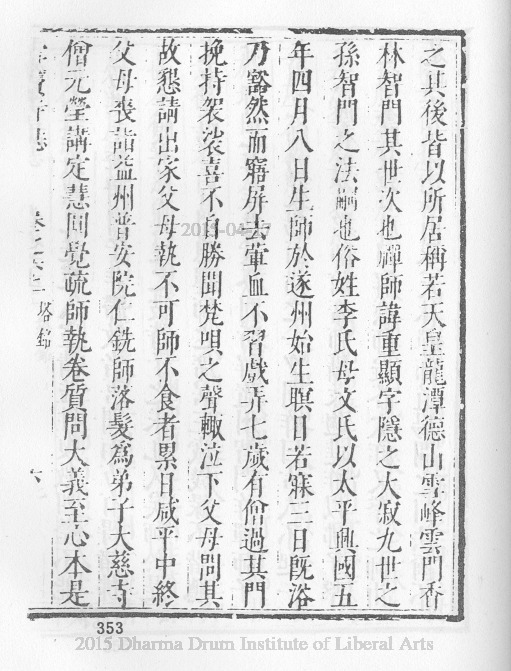 之其後皆以所居稱若天皇龍潭德山雪峰雲門香
林智門其世次也禪師諱重顯字隱之大寂九世之
孫智門之法嗣也俗姓李氏母文氏以太平興國五
年四月八日生師於遂州始生瞑目若寐三日既浴
乃豁然而寤屏去葷血不習戲弄七歲有僧過其門
挽持袈裟喜不自勝聞梵唄之聲輙泣下父母問其
故懇請出家父母執不可師不食者累日咸平中終
父母喪詣益州普安院仁銑師落髮為弟子大慈寺
僧元瑩講定慧圓覺疏師執卷質問大義至心本是
寺志 卷之 塔銘 六
353
2015 Dharma Drum Institute of Liberal Arts